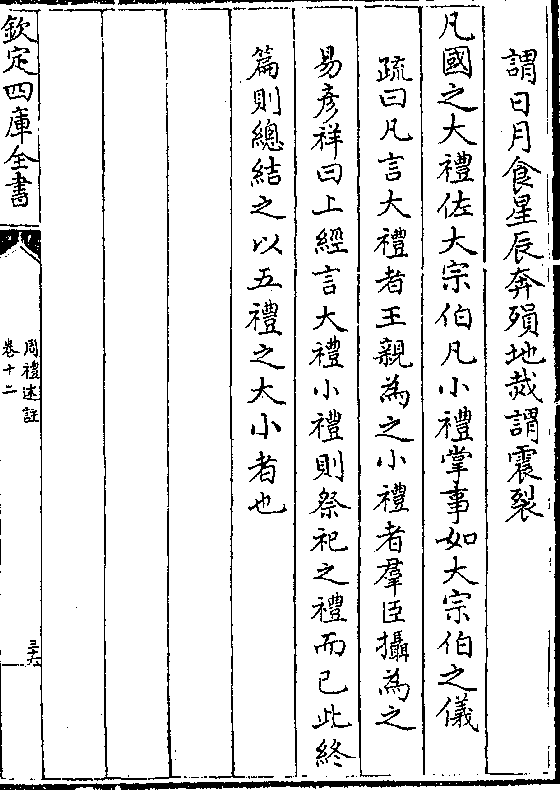 謂日月食星辰奔殞地烖謂震裂
凡國之大禮佐大宗伯凡小禮掌事如大宗伯之儀
疏曰凡言大禮者王親為之小禮者羣臣攝為之
易彥祥曰上經言大禮小禮則祭祀之禮而已此終
篇則總結之以五禮之大小者也
欽定四庫全書
周禮述註
卷十二
三六